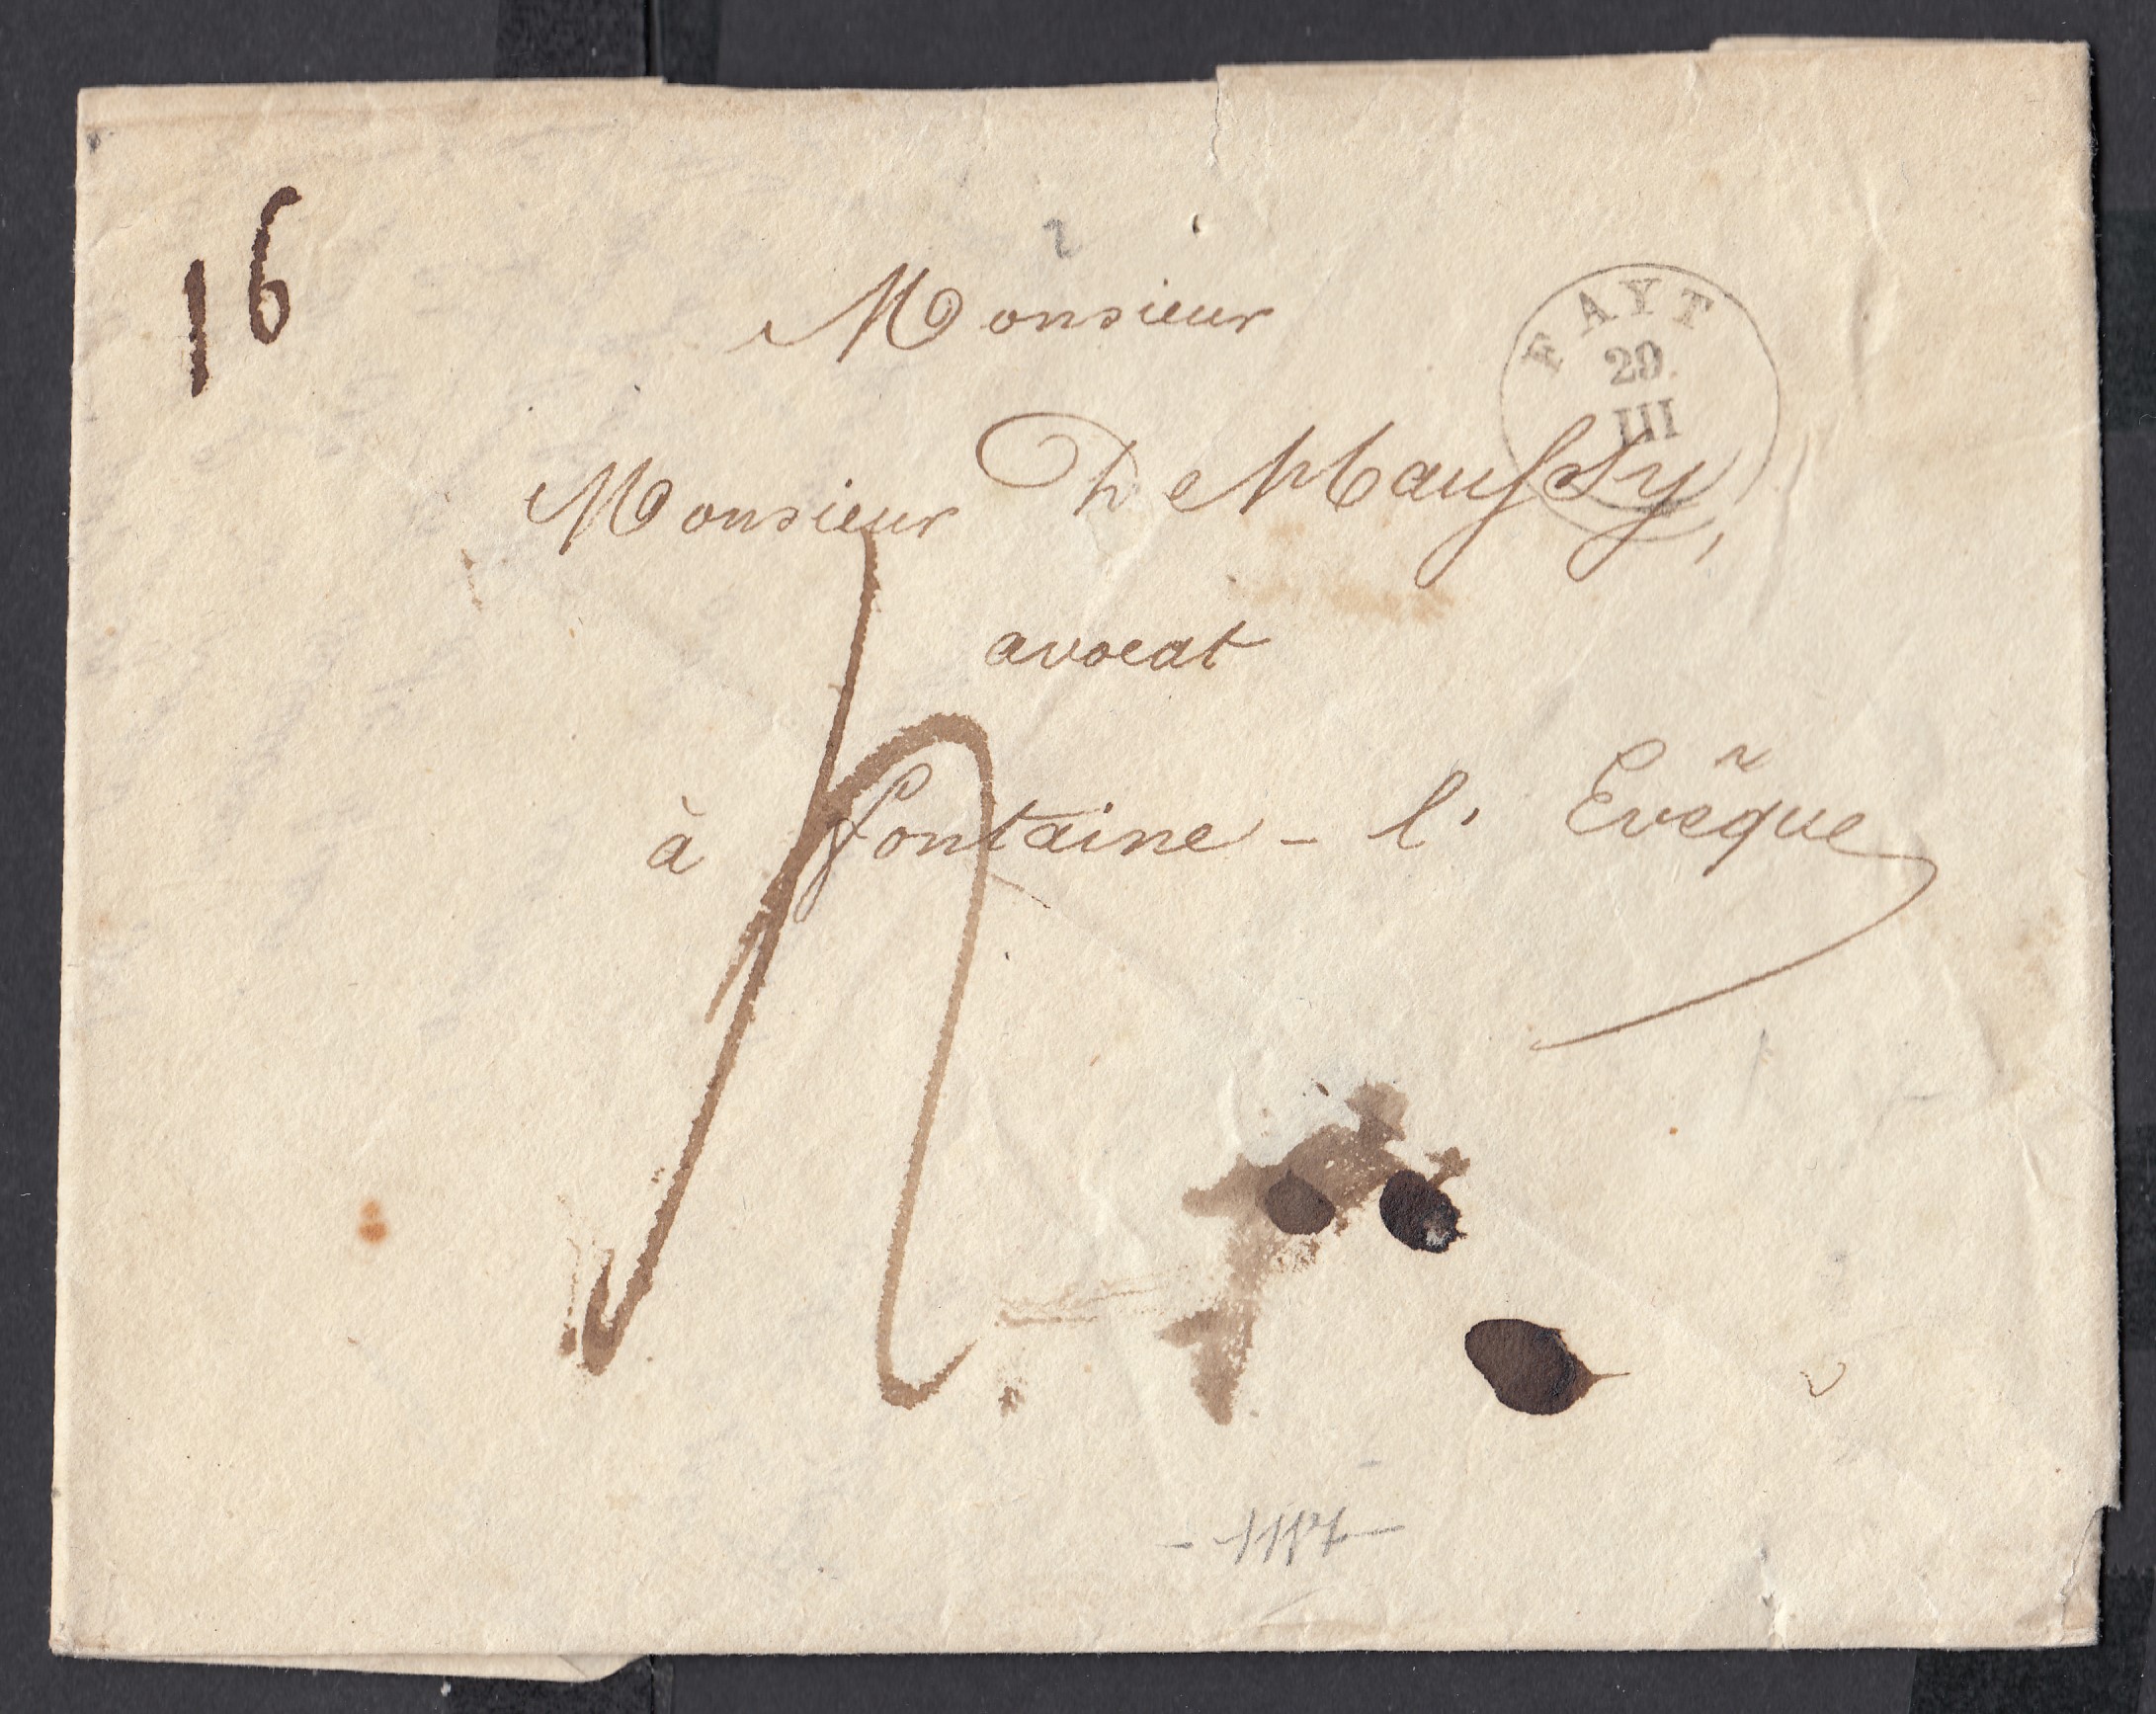 16
Monsieur
FAYT
29
III
Monsieur De
avocat
à fontaine - l' Evêque